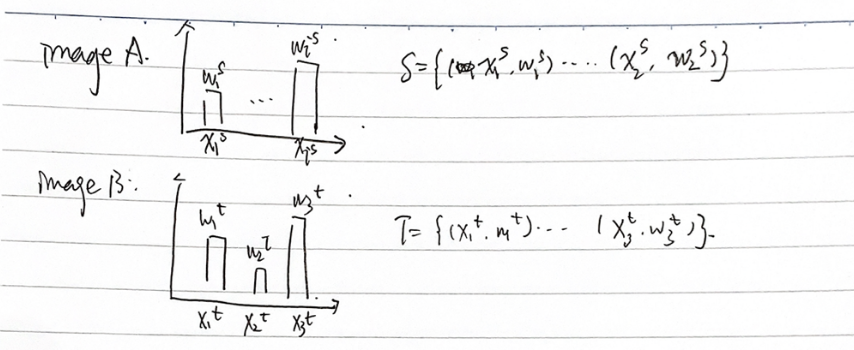 Image A.
w₁ˢ
w₂ˢ
...
x₁ˢ
x₂ˢ
S={(x₁ˢ, w₁ˢ) ..... (x₂ˢ, w₂ˢ)}
Image B:
w₁ᵗ
w₂ᵗ
w₃ᵗ
x₁ᵗ x₂ᵗ x₃ᵗ
T= {(x₁ᵗ. w₁ᵗ) ... (x₃ᵗ. w₃ᵗ)}.